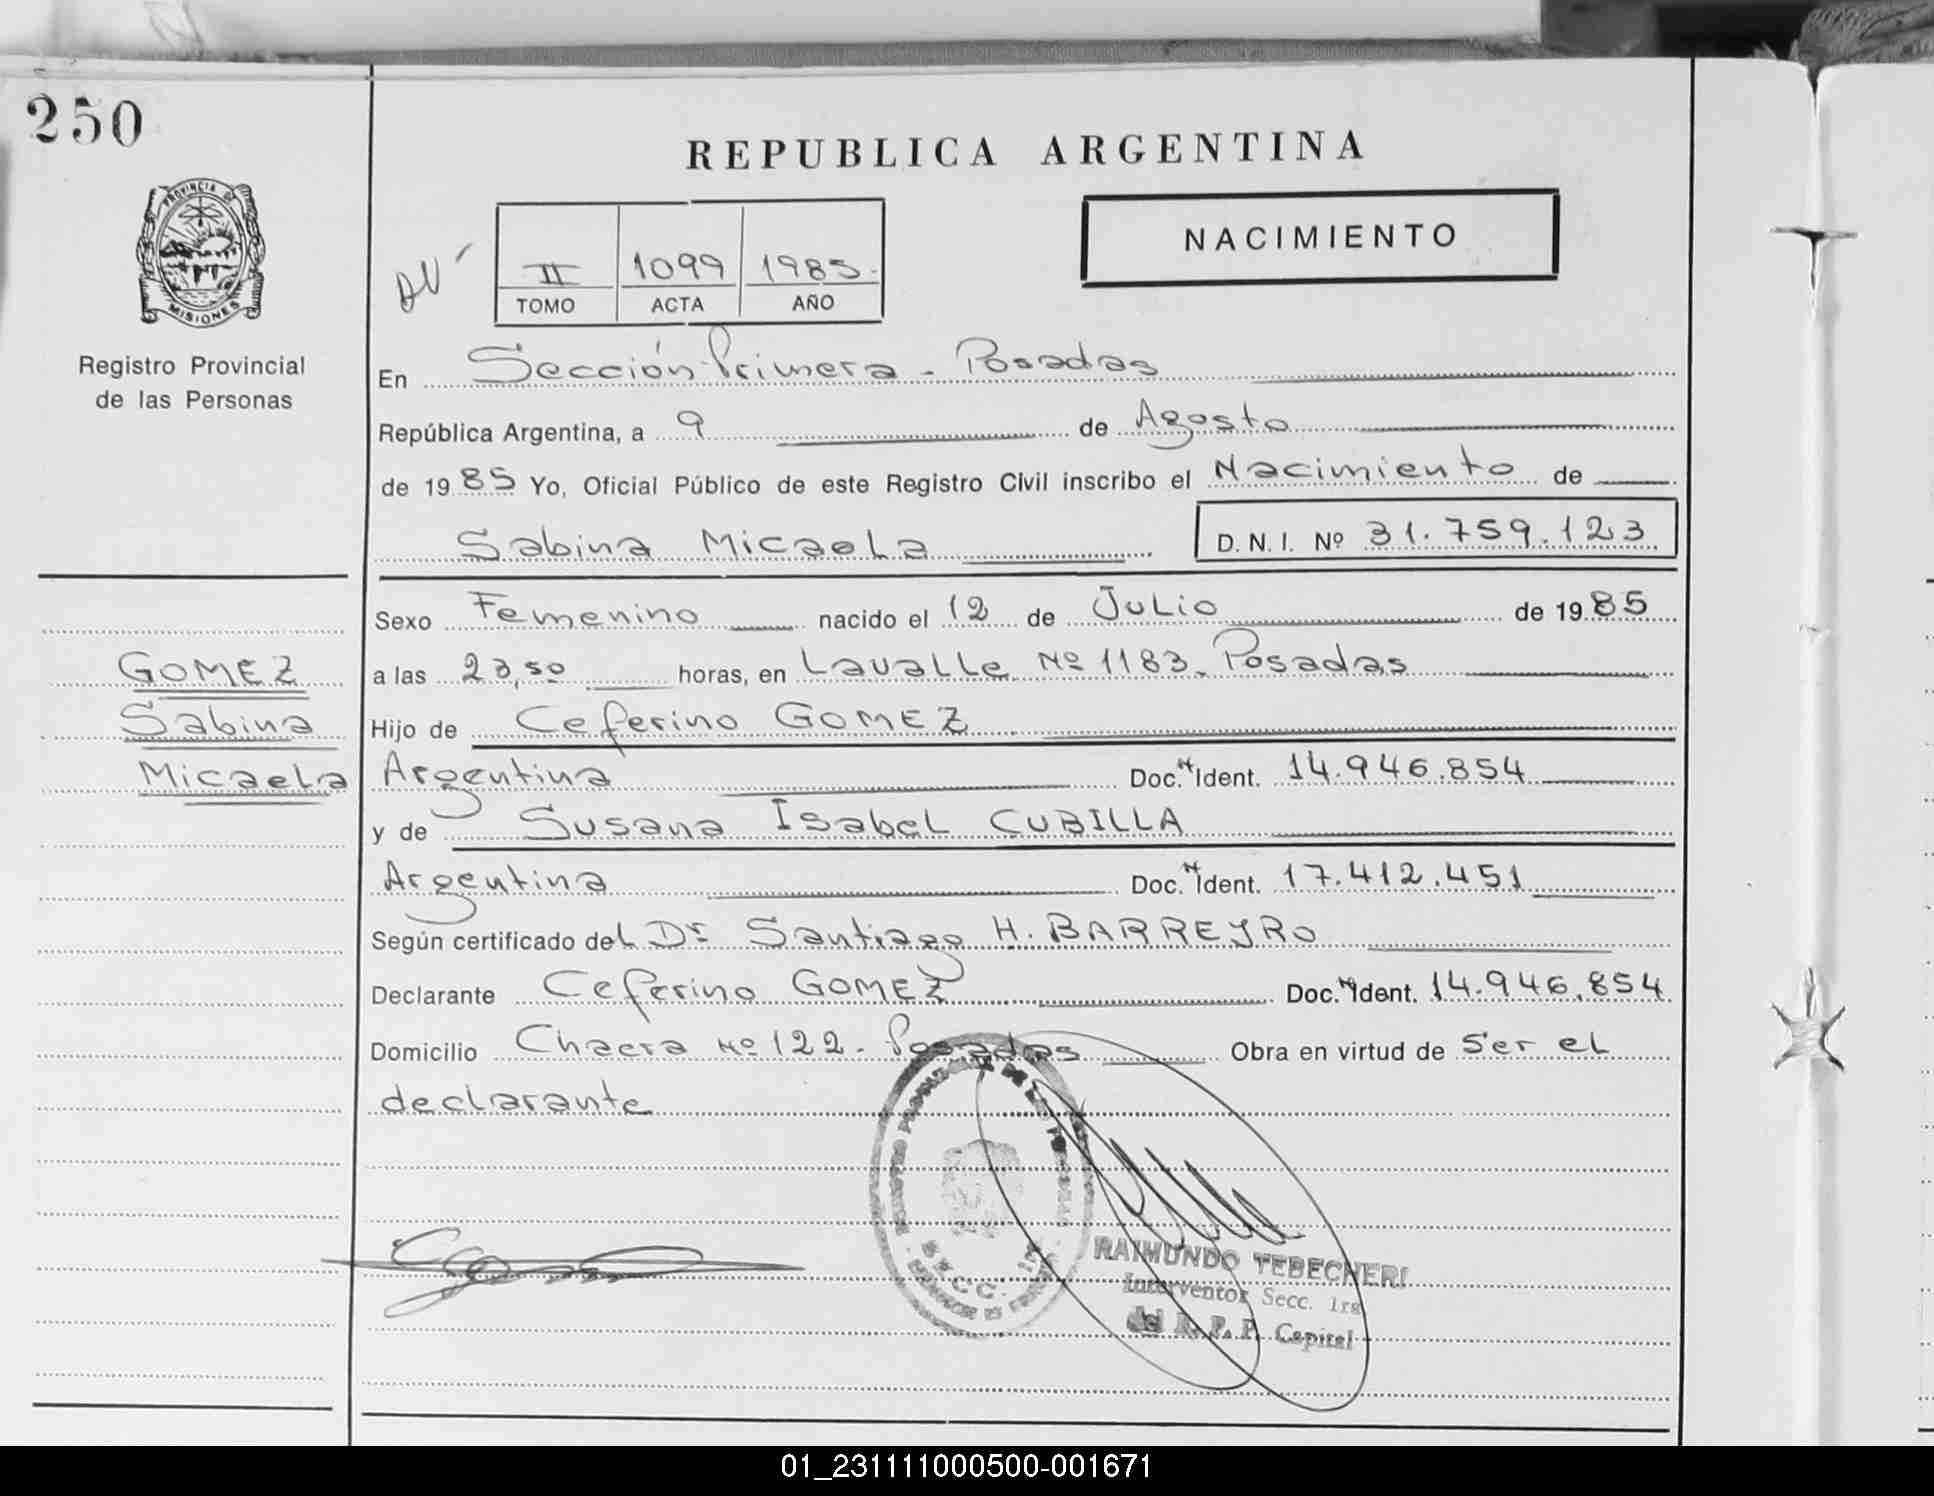 250
REPUBLICA ARGENTINA
PROVINCIA DE
MISIONES
Registro Provincial
de las Personas
NACIMIENTO
II 1099 1985.
TOMO ACTA AÑO
En Sección Primera - Posadas
República Argentina, a 9 de Agosto
de 1985 Yo, Oficial Público de este Registro Civil inscribo el Nacimiento de
Sabina Micaela D. N. I. Nº 31.759.123
Sexo Femenino nacido el 12 de Julio de 1985
a las 23,50 horas, en Lavalle Nº 1183. Posadas
Hijo de Ceferino GOMEZ
Argentina Doc. Ident. 14.946.854
y de Susana Isabel CUBILLA
Argentina Doc. Ident. 17.412.451
Según certificado del Dr Santiago H. BARREYRO
Declarante Ceferino GOMEZ Doc. Ident. 14.946.854
Domicilio Chacra Nº 122. Posadas Obra en virtud de ser el
declarante
GOMEZ
Sabina
Micaela
RAIMUNDO TEBECHERI
Interventor Secc. 1ra
del R. P. P. Capital
01_231111000500-001671